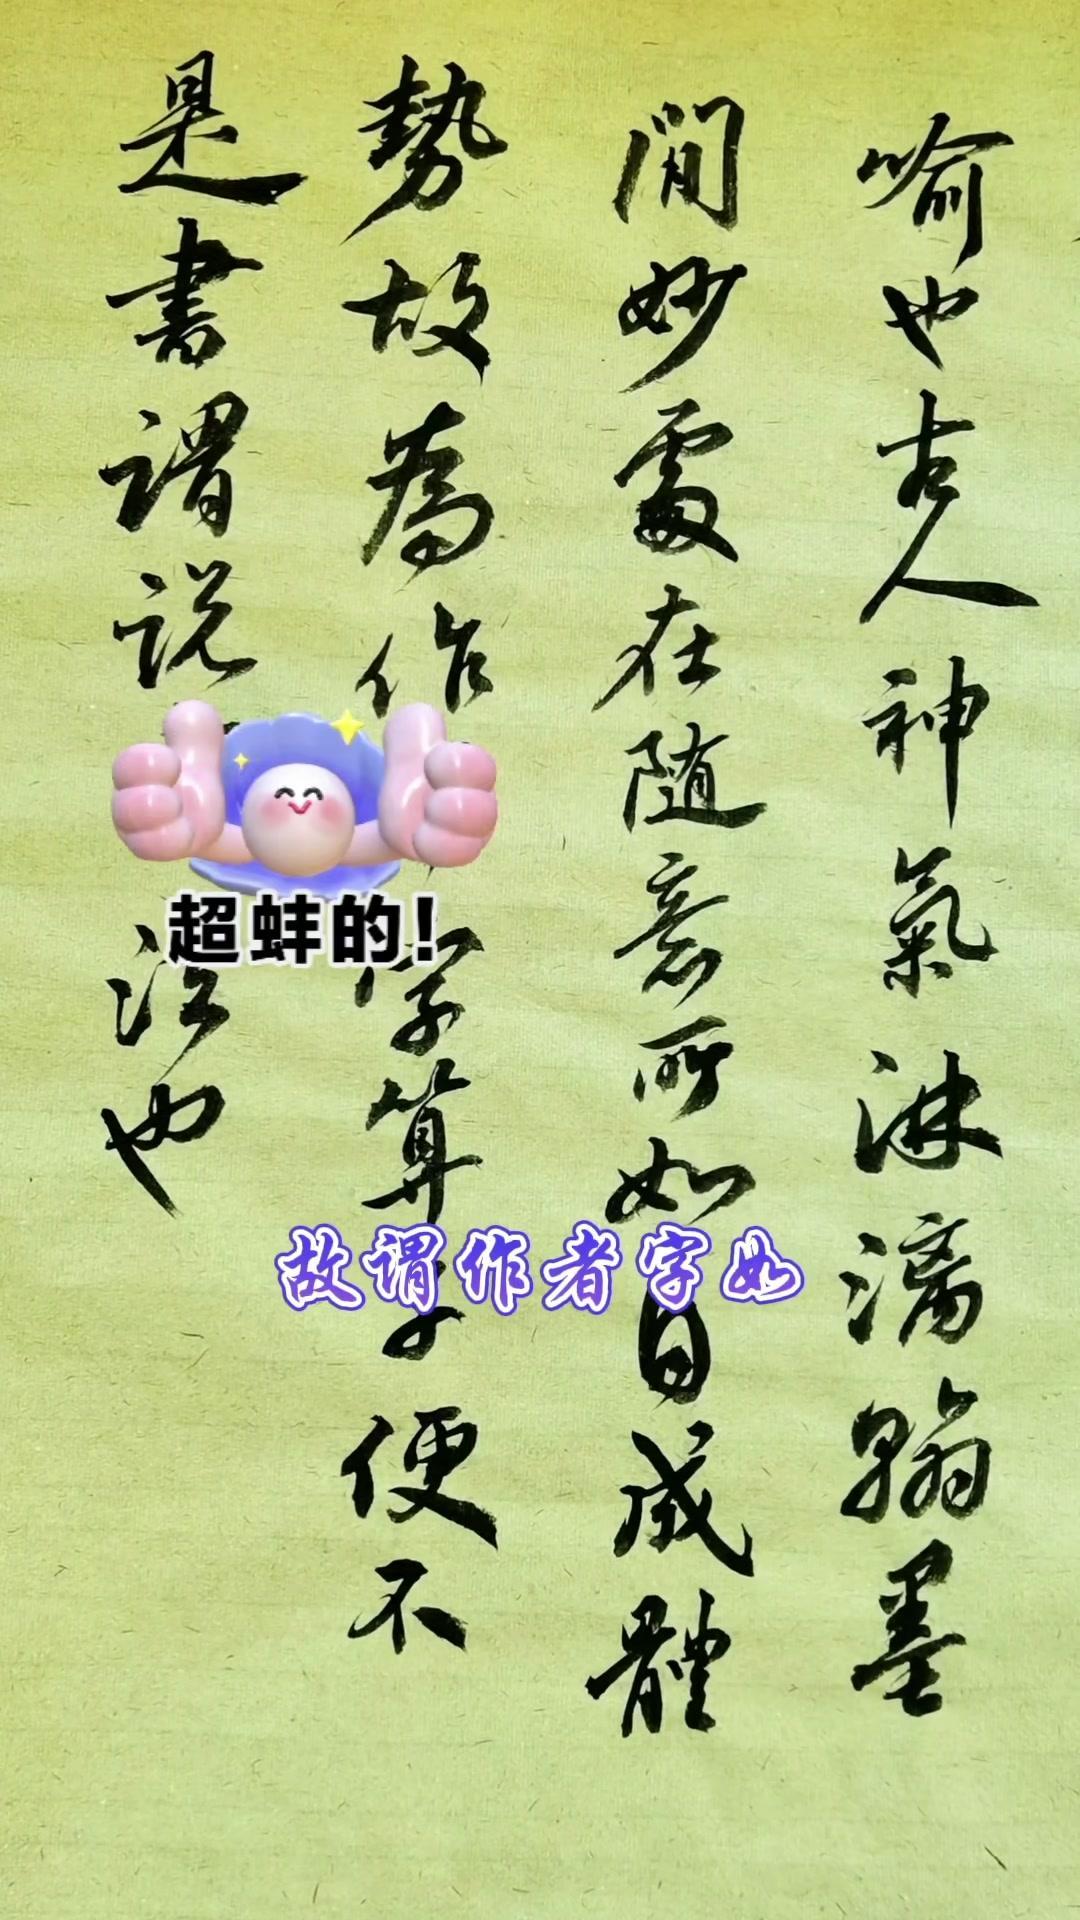 喻也古人神氣淋漓翰墨
閒妙處在随意所如自成體
勢故為作字算子便不
是書謂説法也
超蚌的!
故谓作者字如